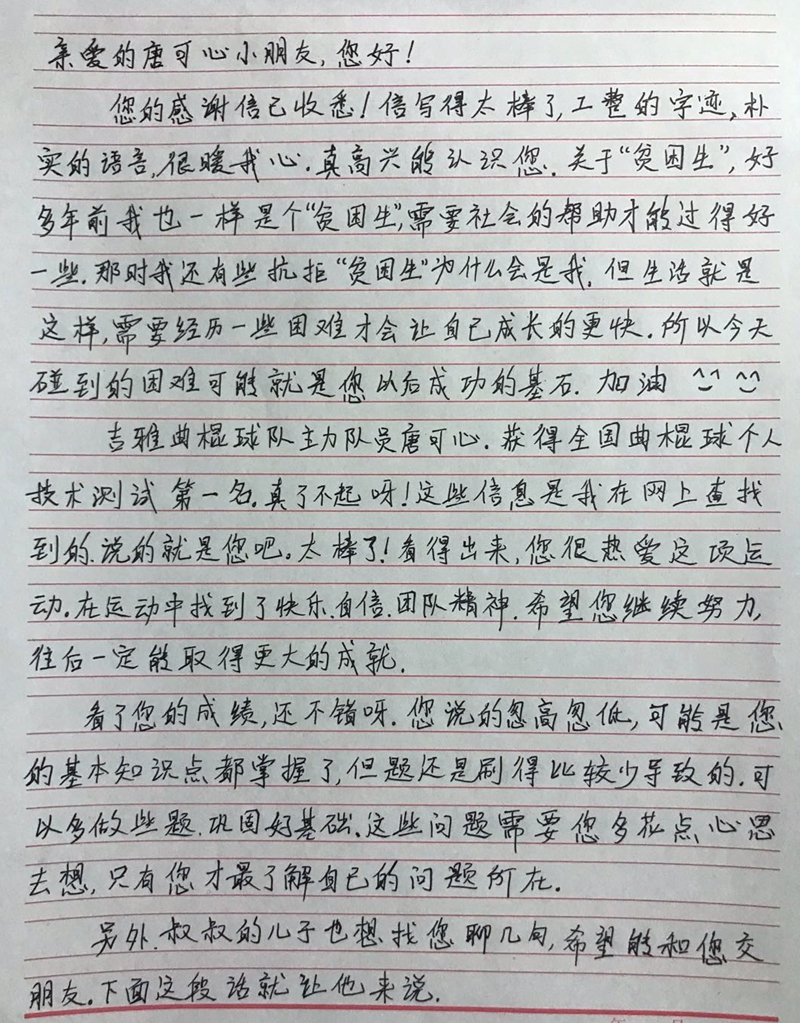 亲爱的唐可心小朋友,您好!
您的感谢信已收悉!信写得太棒了,工整的字迹、朴
实的语言,很暖我心.真高兴能认识您.关于“贫困生”,好
多年前我也一样是个“贫困生”,需要社会的帮助才能过得好
一些.那时我还有些抗拒“贫困生”为什么会是我.但生活就是
这样,需要经历一些困难才会让自己成长的更快.所以今天
碰到的困难可能就是您以后成功的基石.加油 ^_^ ^_^
吉雅曲棍球队主力队员唐可心.获得全国曲棍球个人
技术测试第一名.真了不起呀!这些信息是我在网上查找
到的.说的就是您吧.太棒了!看得出来,您很热爱这项运
动.在运动中找到了快乐.自信.团队精神.希望您继续努力,
往后一定能取得更大的成就.
看了您的成绩,还不错呀.您说的忽高忽低,可能是您
的基本知识点都掌握了,但题还是刷得比较少导致的.可
以多做些题.巩固好基础.这些问题需要您多花点心思
去想,只有您才最了解自己的问题所在.
另外.叔叔的儿子也想找您聊几句,希望能和您交
朋友.下面这段话就让他来说.